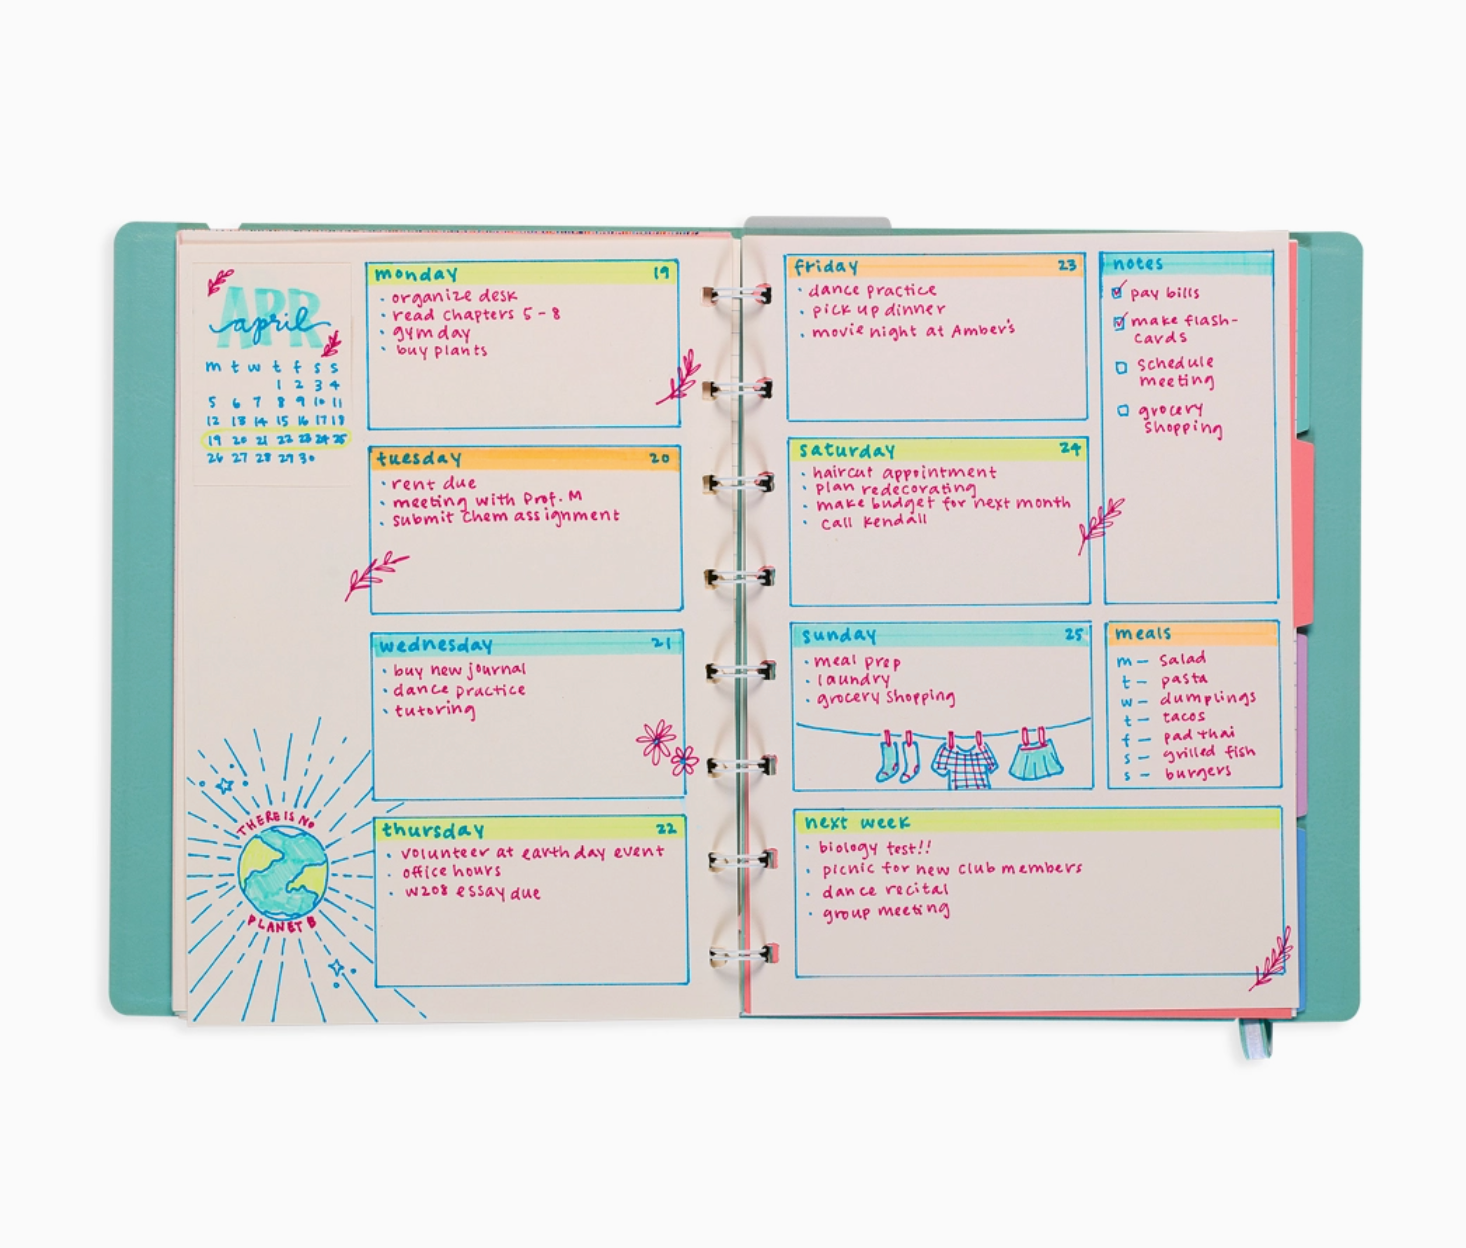 APR
april
m t w t f s s
1 2 3 4
5 6 7 8 9 10 11
12 13 14 15 16 17 18
19 20 21 22 23 24 25
26 27 28 29 30
THERE IS NO
PLANET B
monday 19
· organize desk
· read chapters 5-8
· gym day
· buy plants
tuesday 20
· rent due
· meeting with Prof. M
· submit chem assignment
wednesday 21
· buy new journal
· dance practice
· tutoring
thursday 22
· volunteer at earth day event
· office hours
· W208 essay due
friday 23
· dance practice
· pick up dinner
· movie night at Amber's
saturday 24
· haircut appointment
· plan redecorating
· make budget for next month
· call Kendall
sunday 25
· meal prep
· laundry
· grocery shopping
notes
pay bills
make flash-
cards
schedule
meeting
grocery
shopping
meals
m – salad
t – pasta
w – dumplings
t – tacos
f – pad thai
s – grilled fish
s – burgers
next week
· biology test!!
· picnic for new club members
· dance recital
· group meeting